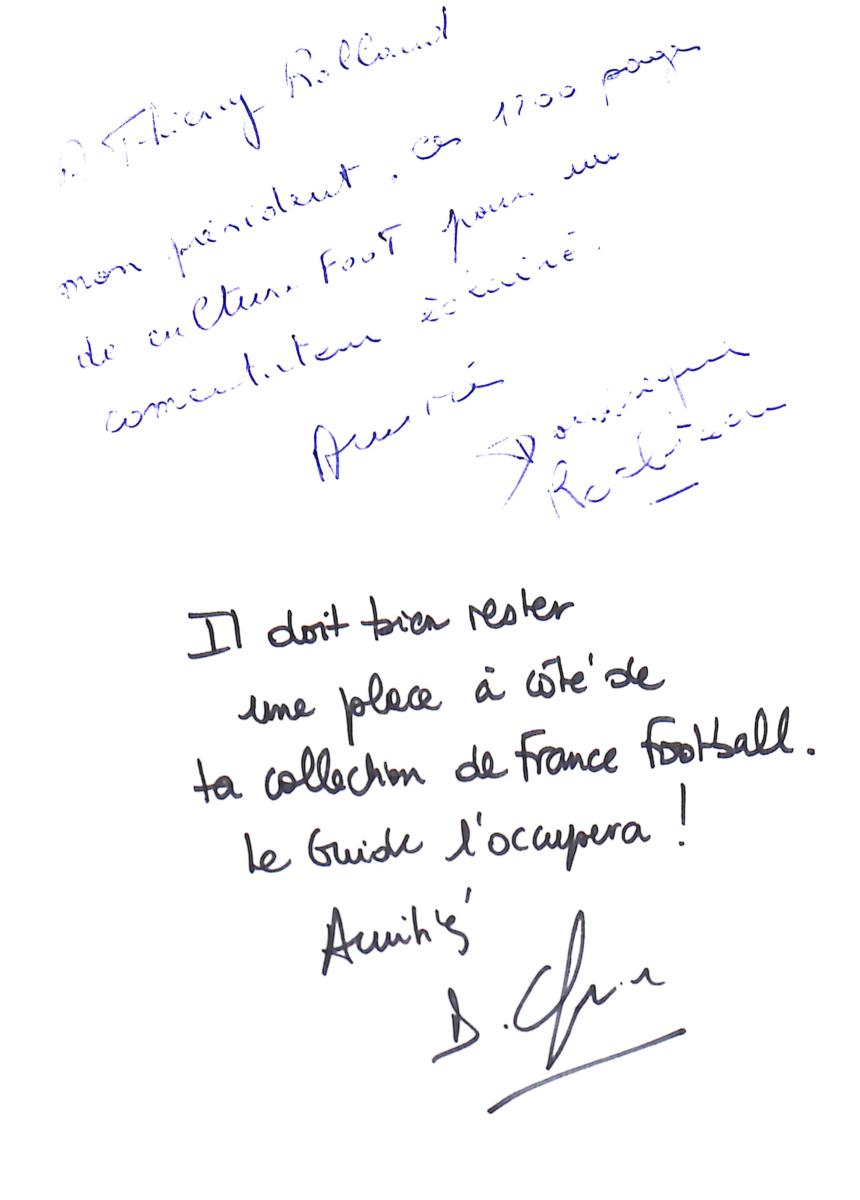 A Thierry Rolland
mon président, ces 1200 pages
de culture FOOT pour un
commentateur éclairé.
Amitié
Dominique
Rocheteau
Il doit bien rester
une place à côté de
ta collection de France Football.
Le Guide l'occupera !
Amitiés
D.